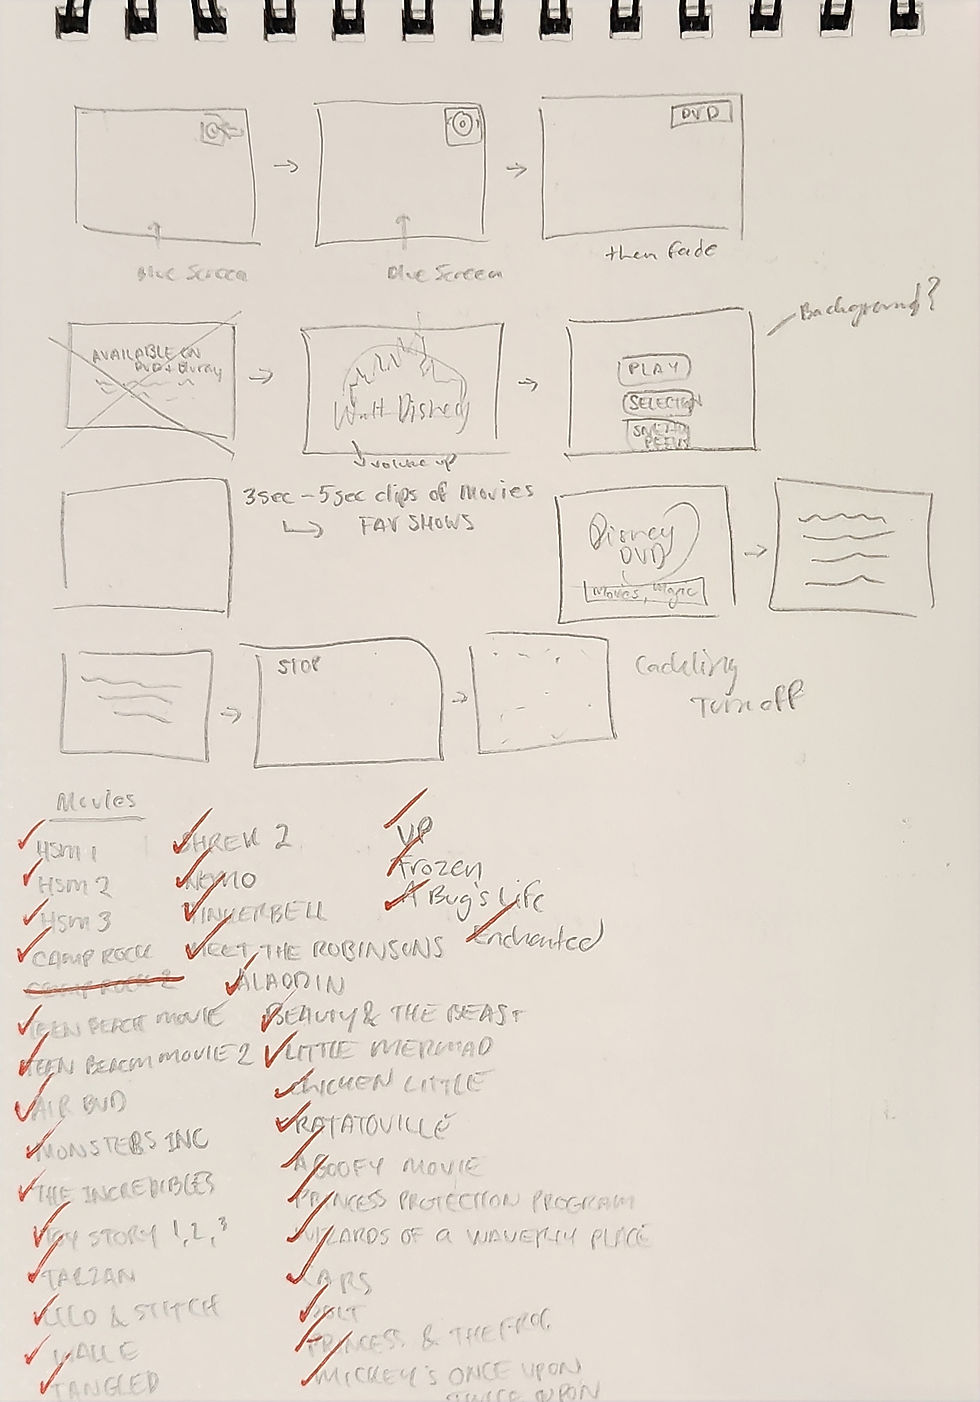 DVD
Blue Screen
Blue Screen
then fade
Background?
AVAILABLE ON
DVD + Bluray
Walt Disney
PLAY
SELECTION
SNEAK
PEEKS
volume up
3sec - 5sec clips of movies
FAV SHOWS
Disney
DVD
Movies, Magic
STOP
Cackling
Turn off
Movies
HSM 1
HSM 2
HSM 3
CAMP ROCK
CAMP ROCK 2
TEEN BEACH MOVIE
TEEN BEACH MOVIE 2
AIR BUD
MONSTERS INC
THE INCREDIBLES
TOY STORY 1, 2, 3
TARZAN
LILO & STITCH
WALL E
TANGLED
SHREK 2
NEMO
TINKERBELL
MEET THE ROBINSONS
ALADDIN
BEAUTY & THE BEAST
LITTLE MERMAD
CHICKEN LITTLE
RATATOUILLE
A GOOFY MOVIE
PRINCESS PROTECTION PROGRAM
WIZARDS OF a WAVERLY PLACE
CARS
BOLT
PRINCESS & THE FROG
MICKEY'S ONCE UPON
TWICE UPON
UP
Frozen
A Bug's Life
Enchanted